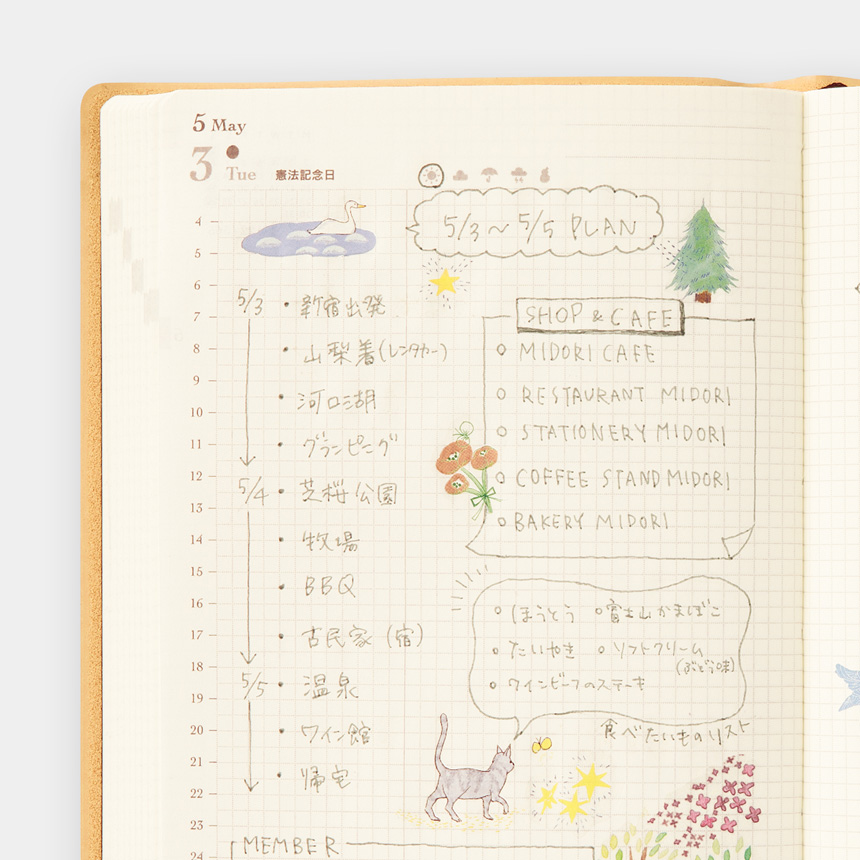 5 May
3 Tue 憲法記念日
5/3～5/5 PLAN
4
5
6
7
8
9
10
11
12
13
14
15
16
17
18
19
20
21
22
23
24
5/3 ・新宿出発
・山梨着(レンタカー)
・河口湖
・グランピング
5/4 ・芝桜公園
・牧場
・BBQ
・古民家(宿)
5/5 ・温泉
・ワイン館
・帰宅
SHOP & CAFE
○ MIDORI CAFE
○ RESTAURANT MIDORI
○ STATIONERY MIDORI
○ COFFEE STAND MIDORI
○ BAKERY MIDORI
○ ほうとう ○富士山かまぼこ
○ たいやき ○ソフトクリーム
(ぶどう味)
○ ワインビーフのステーキ
食べたいものリスト
MEMBER